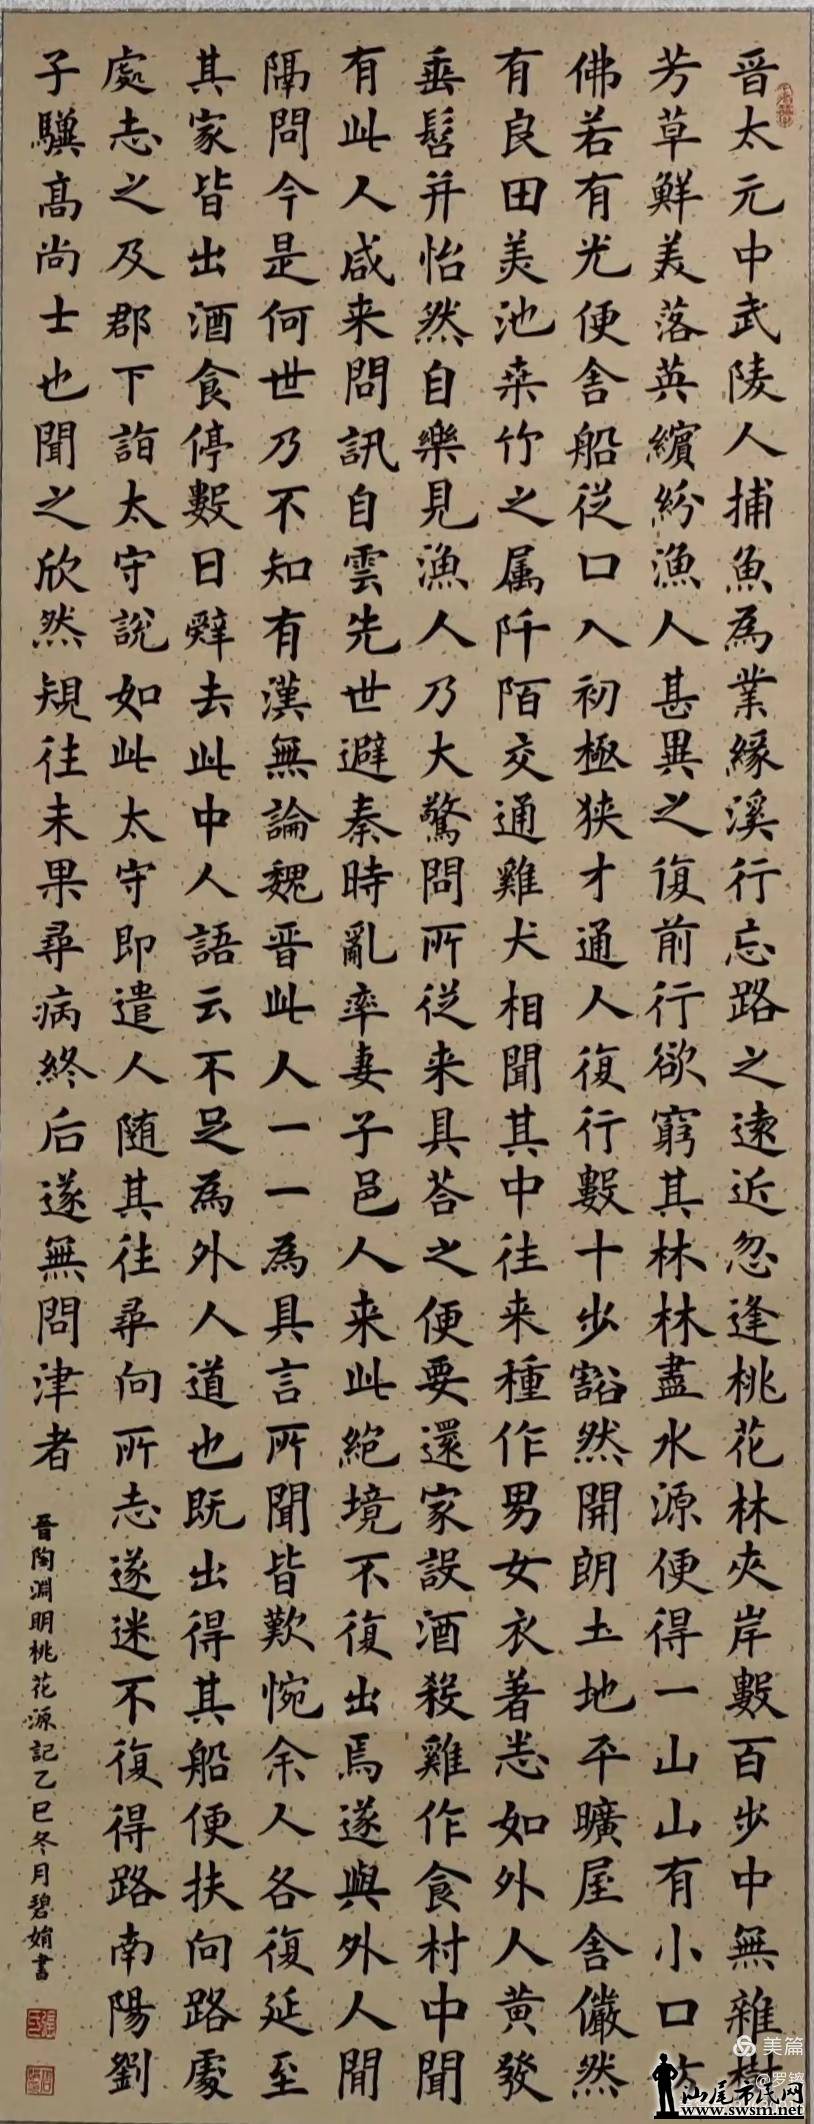 晋太元中武陵人捕魚為業緣溪行忘路之遠近忽逢桃花林夾岸數百步中無雜樹
芳草鮮美落英繽紛漁人甚異之復前行欲窮其林林盡水源便得一山山有小口
佛若有光便舍船從口入初極狹才通人復行數十步豁然開朗土地平曠屋舍儼然
有良田美池桑竹之属阡陌交通雞犬相聞其中往来種作男女衣著悉如外人黄發
垂髫并怡然自樂見漁人乃大驚問所從来具荅之便要還家設酒殺雞作食村中聞
有此人咸来問訊自雲先世避秦時亂率妻子邑人来此絶境不復出焉遂與外人間
隔問今是何世乃不知有漢無論魏晋此人一一為具言所聞皆歎惋余人各復延至
其家皆出酒食停數日辭去此中人語云不足為外人道也既出得其船便扶向路處
處志之及郡下詣太守説如此太守即遣人随其往尋向所志遂迷不復得路南陽劉
子驥高尚士也聞之欣然規往未果尋病終后遂無問津者
晋陶淵明桃花源記乙巳冬月碧娟書
美篇
@罗镲
汕尾市民网
www.swsm.net